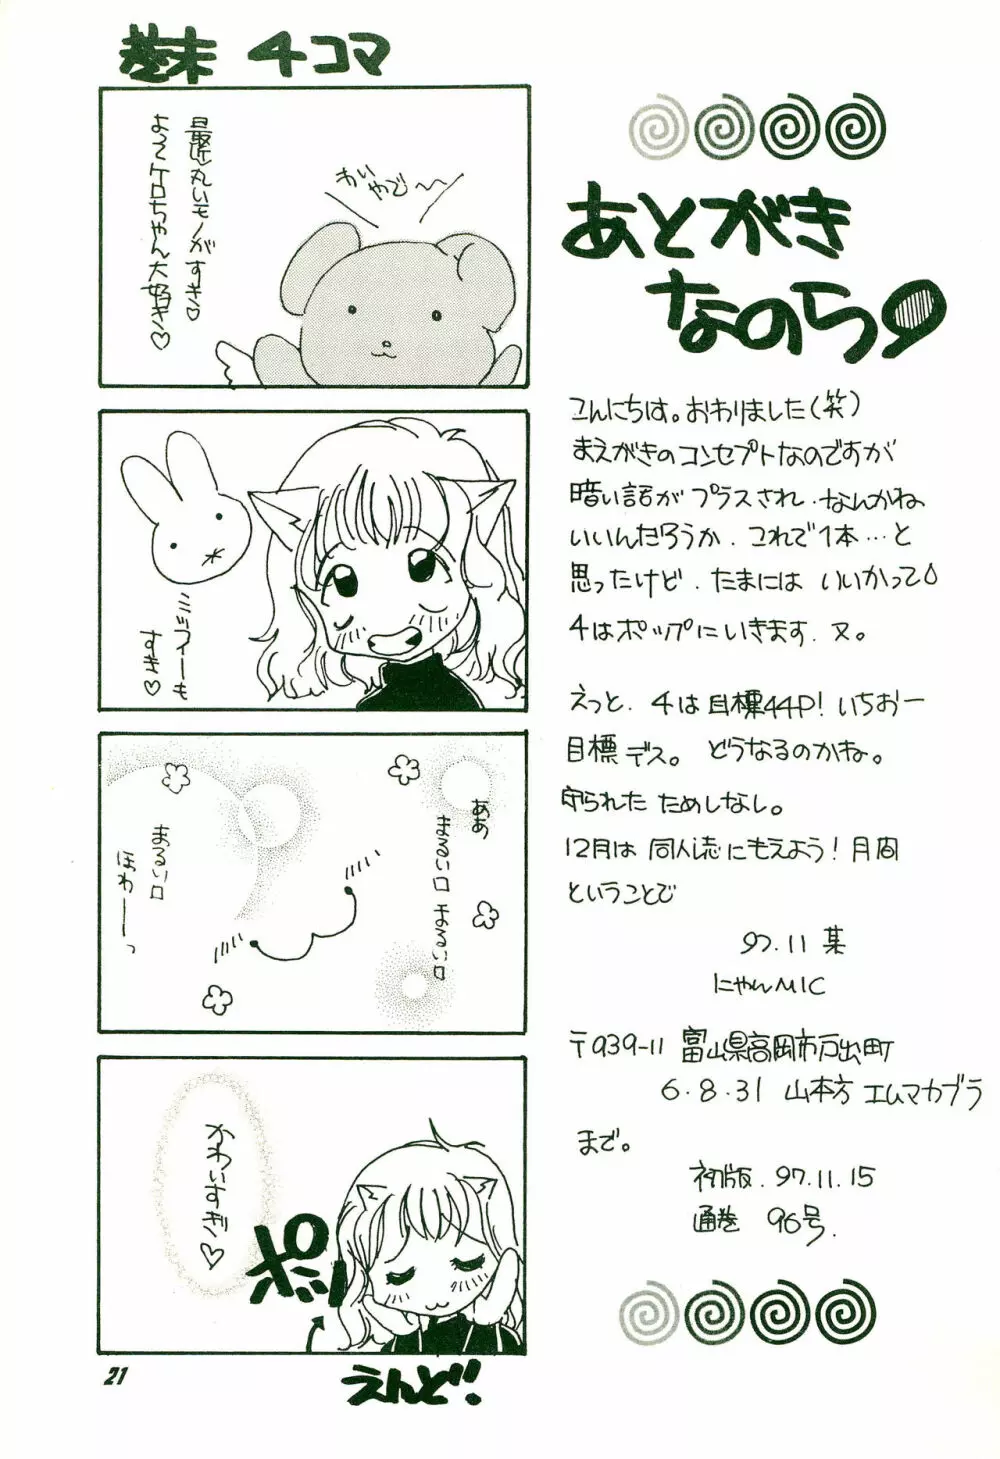 巻末 4コマ
最近丸いモノがすき♡
よってケロちゃん大好き♡
わいやで〜
ミッフィーも
すき♡
ああ
まるい口 まるい口
まるい口
ほわーっ
かわいすぎ♡
ポッ
えんど!!
21
あとがき
なのら
こんにちは。おわりました(笑)
まえがきのコンセプトなのですが
暗い話がプラスされ、なんかね
いいんだろうか、これで1本…と
思ったけど、たまには いいかって
4はポップにいきます、又。
えっと、4は目標44P!いちおー
目標デス。どうなるのかね。
守られた ためしなし。
12月は 同人誌にもえよう!月間
ということで
97.11 某
にゃんMIC
〒939-11 富山県高岡市戸出町
6.8.31 山本方 エムマカブラ
まで。
初版.97.11.15
通巻 96号.